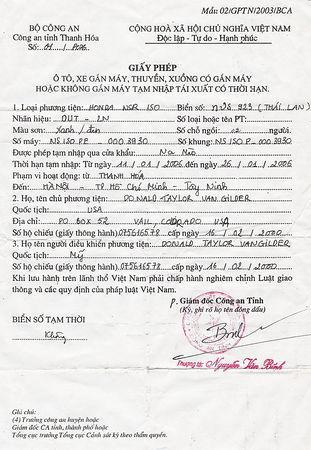 Mẫu: 02/GPTN/2003/BCA
BỘ CÔNG AN
Công an tỉnh Thanh Hóa
Số: 01 /
CỘNG HOÀ XÃ HỘI CHỦ NGHĨA VIỆT NAM
Độc lập - Tự do - Hạnh phúc
GIẤY PHÉP
Ô TÔ, XE GẮN MÁY, THUYỀN, XUỒNG CÓ GẮN MÁY
HOẶC KHÔNG GẮN MÁY TẠM NHẬP TÁI XUẤT CÓ THỜI HẠN.
1. Loại phương tiện: HONDA NSR 150 Biển số: 923 (THÁI LAN)
Nhãn hiệu: OUT - LN Số loại hoặc PT:
Màu sơn: Xanh / đen Số chỗ ngồi: 02 người.
Số máy: NSISO PE - 0003930 Số khung: NSISO P - 0003930
Được phép tạm nhập qua cửa khẩu: Na Mèo
Thời hạn tạm nhập: Từ ngày 11 / 01 /2006 đến ngày 26 / 01 /2006
Phạm vi hoạt động từ: THANH HOÁ
Đến: HÀNỘI - TP Hồ Chí Minh - Tây Ninh
2. Họ, tên chủ phương tiện: DONALD TAYLOR VAN GILDER
Quốc tịch: USA
Địa chỉ: PO BOX 52 VAIL, COLORADO USA
Số hộ chiếu (giấy thông hành): 075616578 cấp ngày 16 / 02 / 2000
3. Họ tên người điều khiển phương tiện: DONALD TAYLOR VANGILDER
Quốc tịch: Mỹ
Số hộ chiếu (giấy thông hành) 075616578 cấp ngày 16 / 02 / 2000
Khi lưu hành trên lãnh thổ Việt Nam phải chấp hành nghiêm chỉnh Luật giao
thông và các quy định của pháp luật Việt Nam.
P. Giám đốc Công an Tỉnh
(Ký, ghi rõ họ tên đóng dấu)
BIỂN SỐ TẠM THỜI
Không
Thượng tá: Nguyễn Văn Bính
Ghi chú:
(4) Trưởng công an huyện hoặc
Giám đốc CA tỉnh, thành phố hoặc
Tổng cục trưởng Tổng cục Cảnh sát ký theo thẩm quyền.